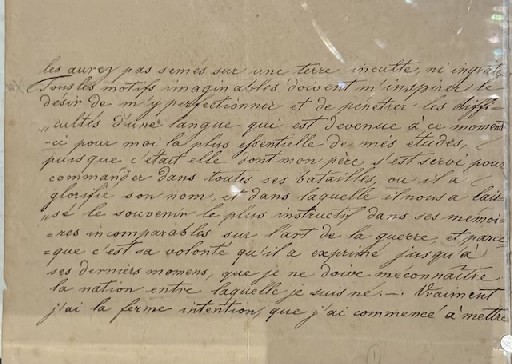 les aurez pas semés sur une terre inculte, ni ingrate.
Tous les motifs imaginables doivent m'inspirer le
desir de m'y perfectionner et de penetrer les diffi-
„cultés d'une langue qui est devenue à ce moment
-ci pour moi la plus essentielle de mes études,
puisque c'était elle dont mon père s'est servi pour
commander dans toutes ses batailles, ou il a
glorifié son nom, et dans laquelle il nous a lais-
„sé le souvenir le plus instructif dans ses memoi-
=res incomparables sur l'art de la guerre, et parce
=que c'est sa volonté qu'il a exprimé jusqu'à
ses derniers momens, que je ne doive meconnaitre
la nation entre laquelle je suis né. — Vraiment
j'ai la ferme intention, que j'ai commencé à mettre